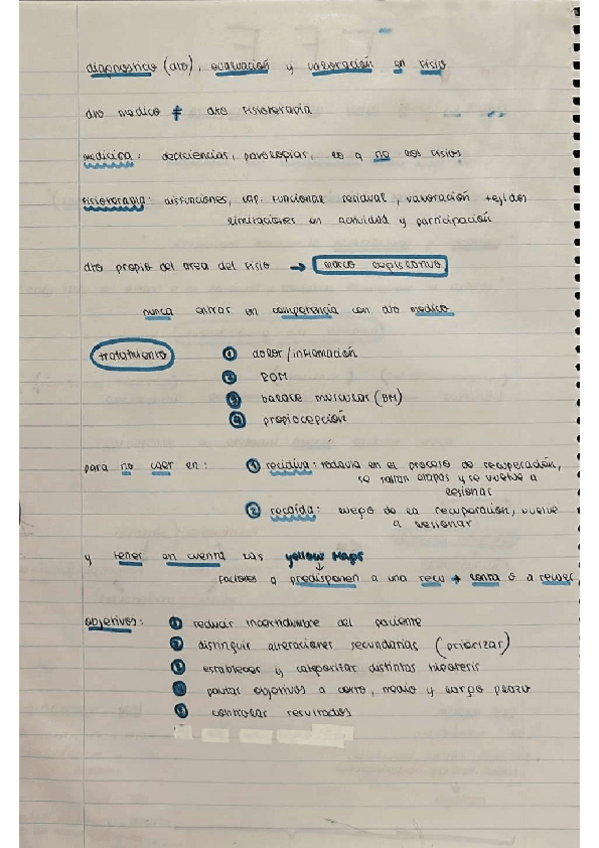 diagnostico (dto), evaluación y valoración en fisio
dto medico ≠ dto fisioterapia
medicina: deficiencias, patologias, es a no los fisios
fisioterapia: disfunciones, cap. funcional residual, valoración tejidos
limitaciones en actividad y participación
dto propio del area del fisio →
nunca entrar en competencia con dto medico
tratamiento
① dolor/inflamación
② ROM
③ balance muscular (BM)
④ propiocepción
para no caer en: ① recidiva: todavia en el proceso de recuperación,
se saltan etapas y se vuelve a
lesionar
② recaída: luego de la recuperación, vuelve
a lesionar
y tener en cuenta las yellow flags
↓
factores q predisponen a una recu + lenta o a recaer
objetivos: ① reducir incertidumbre del paciente
② distinguir alteraciones secundarias (priorizar)
establecer y categorizar distintas hipotesis
pautar objetivos a corto, medio y largo plazo
controlar resultados